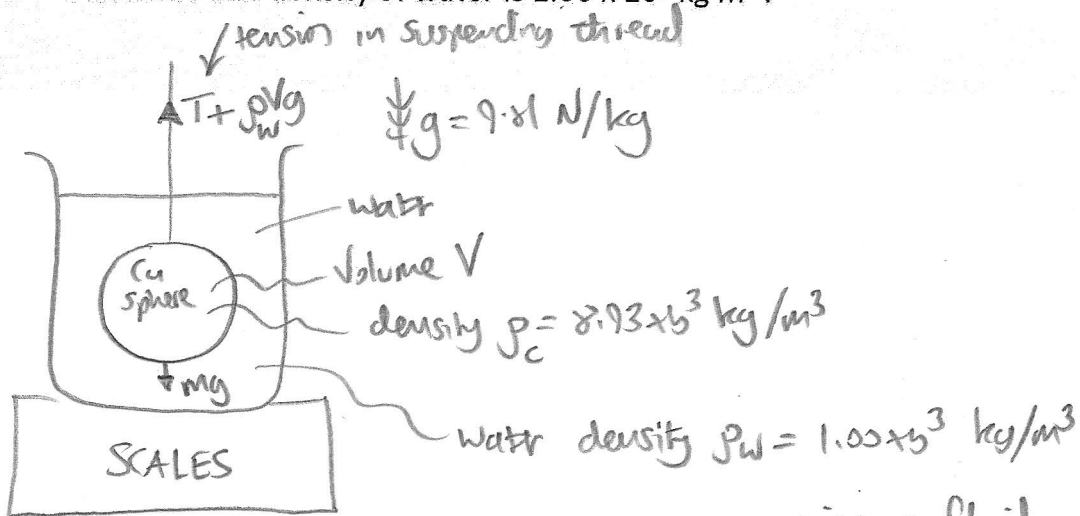 density of water is
tension in suspending thread
T + ρwVg
g = 9.81 N/kg
water
Cu
sphere
Volume V
density ρc = 8.93 x 10³ kg/m³
mg
water density ρw = 1.00 x 10³ kg/m³
SCALES